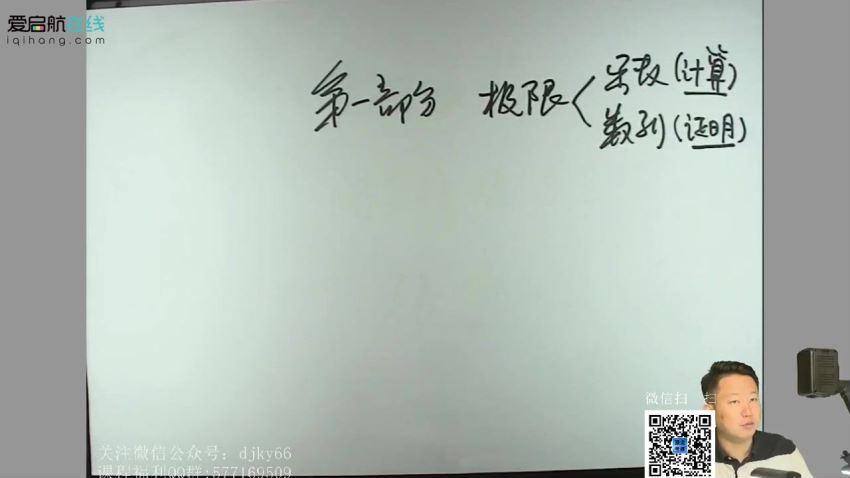 爱启航在线
iqihang.com
第一部分 极限
函数(计算)
数列(证明)
微信扫一扫
关注微信公众号：djky66
课程福利QQ群:577169509